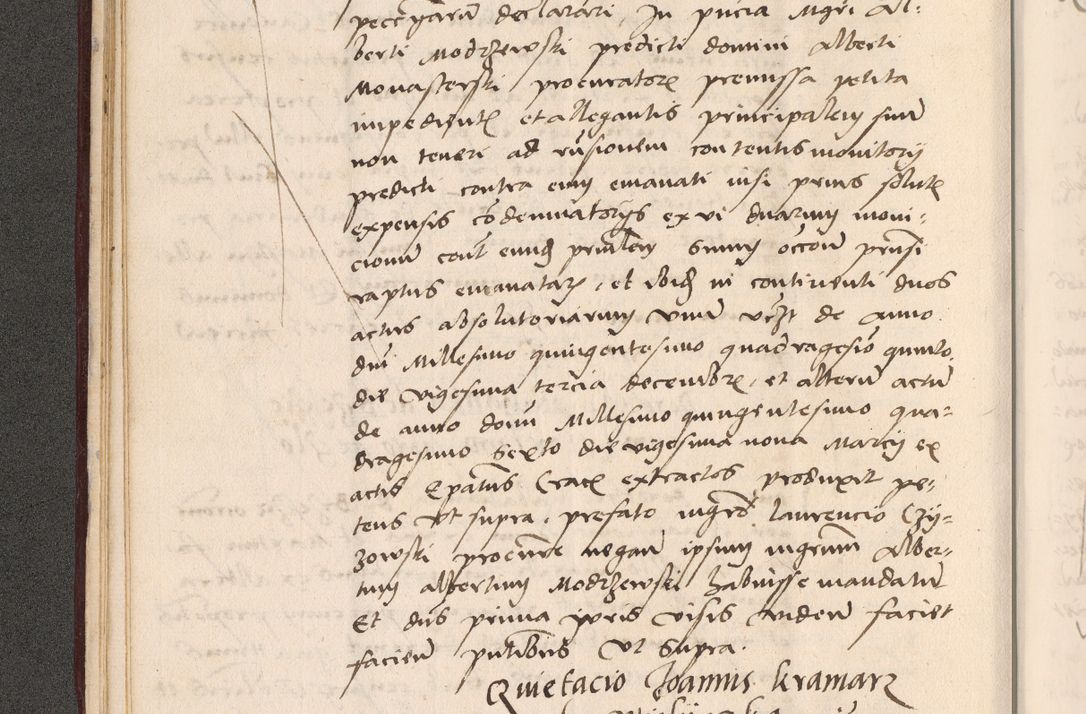 peccatarum declarari In pńcia Mgri Al-
berti Modrzewski predicti domini Alberti
Monasterski procuratore premissa petita
impediente et allegantis principalem suum
non teneri ad contentis monitorij
predicti contra eum emanati nisi prius solute
expensis condemnatorijs ex vi duarum moni-
cionum cont eund principalem suum
raptus emanatare, et ibid in continenti duos
actus absolutoriarum unum vczt de Anno
dni Millesimo quingentesimo quadragesio quinto
die vigesima tercia decembre, et alterum actum
de anno domi Millesimo quingentesimo qua-
dragesimo sexto die vigesima nona Marcij ex
actis Epatus Crace extractos produxit pe-
tens ut supra, prefato mgro Laurencio Czy-
zowski procure negan ipsum mgrum Alber-
tum Albertum Modrzewski habuisse mandatum
Et dns prima iuris visis videm faciet
faciem putibus ut supra.
Quietacio Joannis kramarz